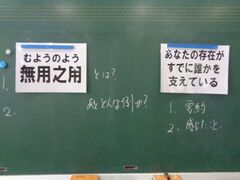 むようのよう
無用之用
とは?
1.
2.
あとどんな例か?
あなたの存在が
すでに誰かを
支えている
1. 要約
2. 感じたこと